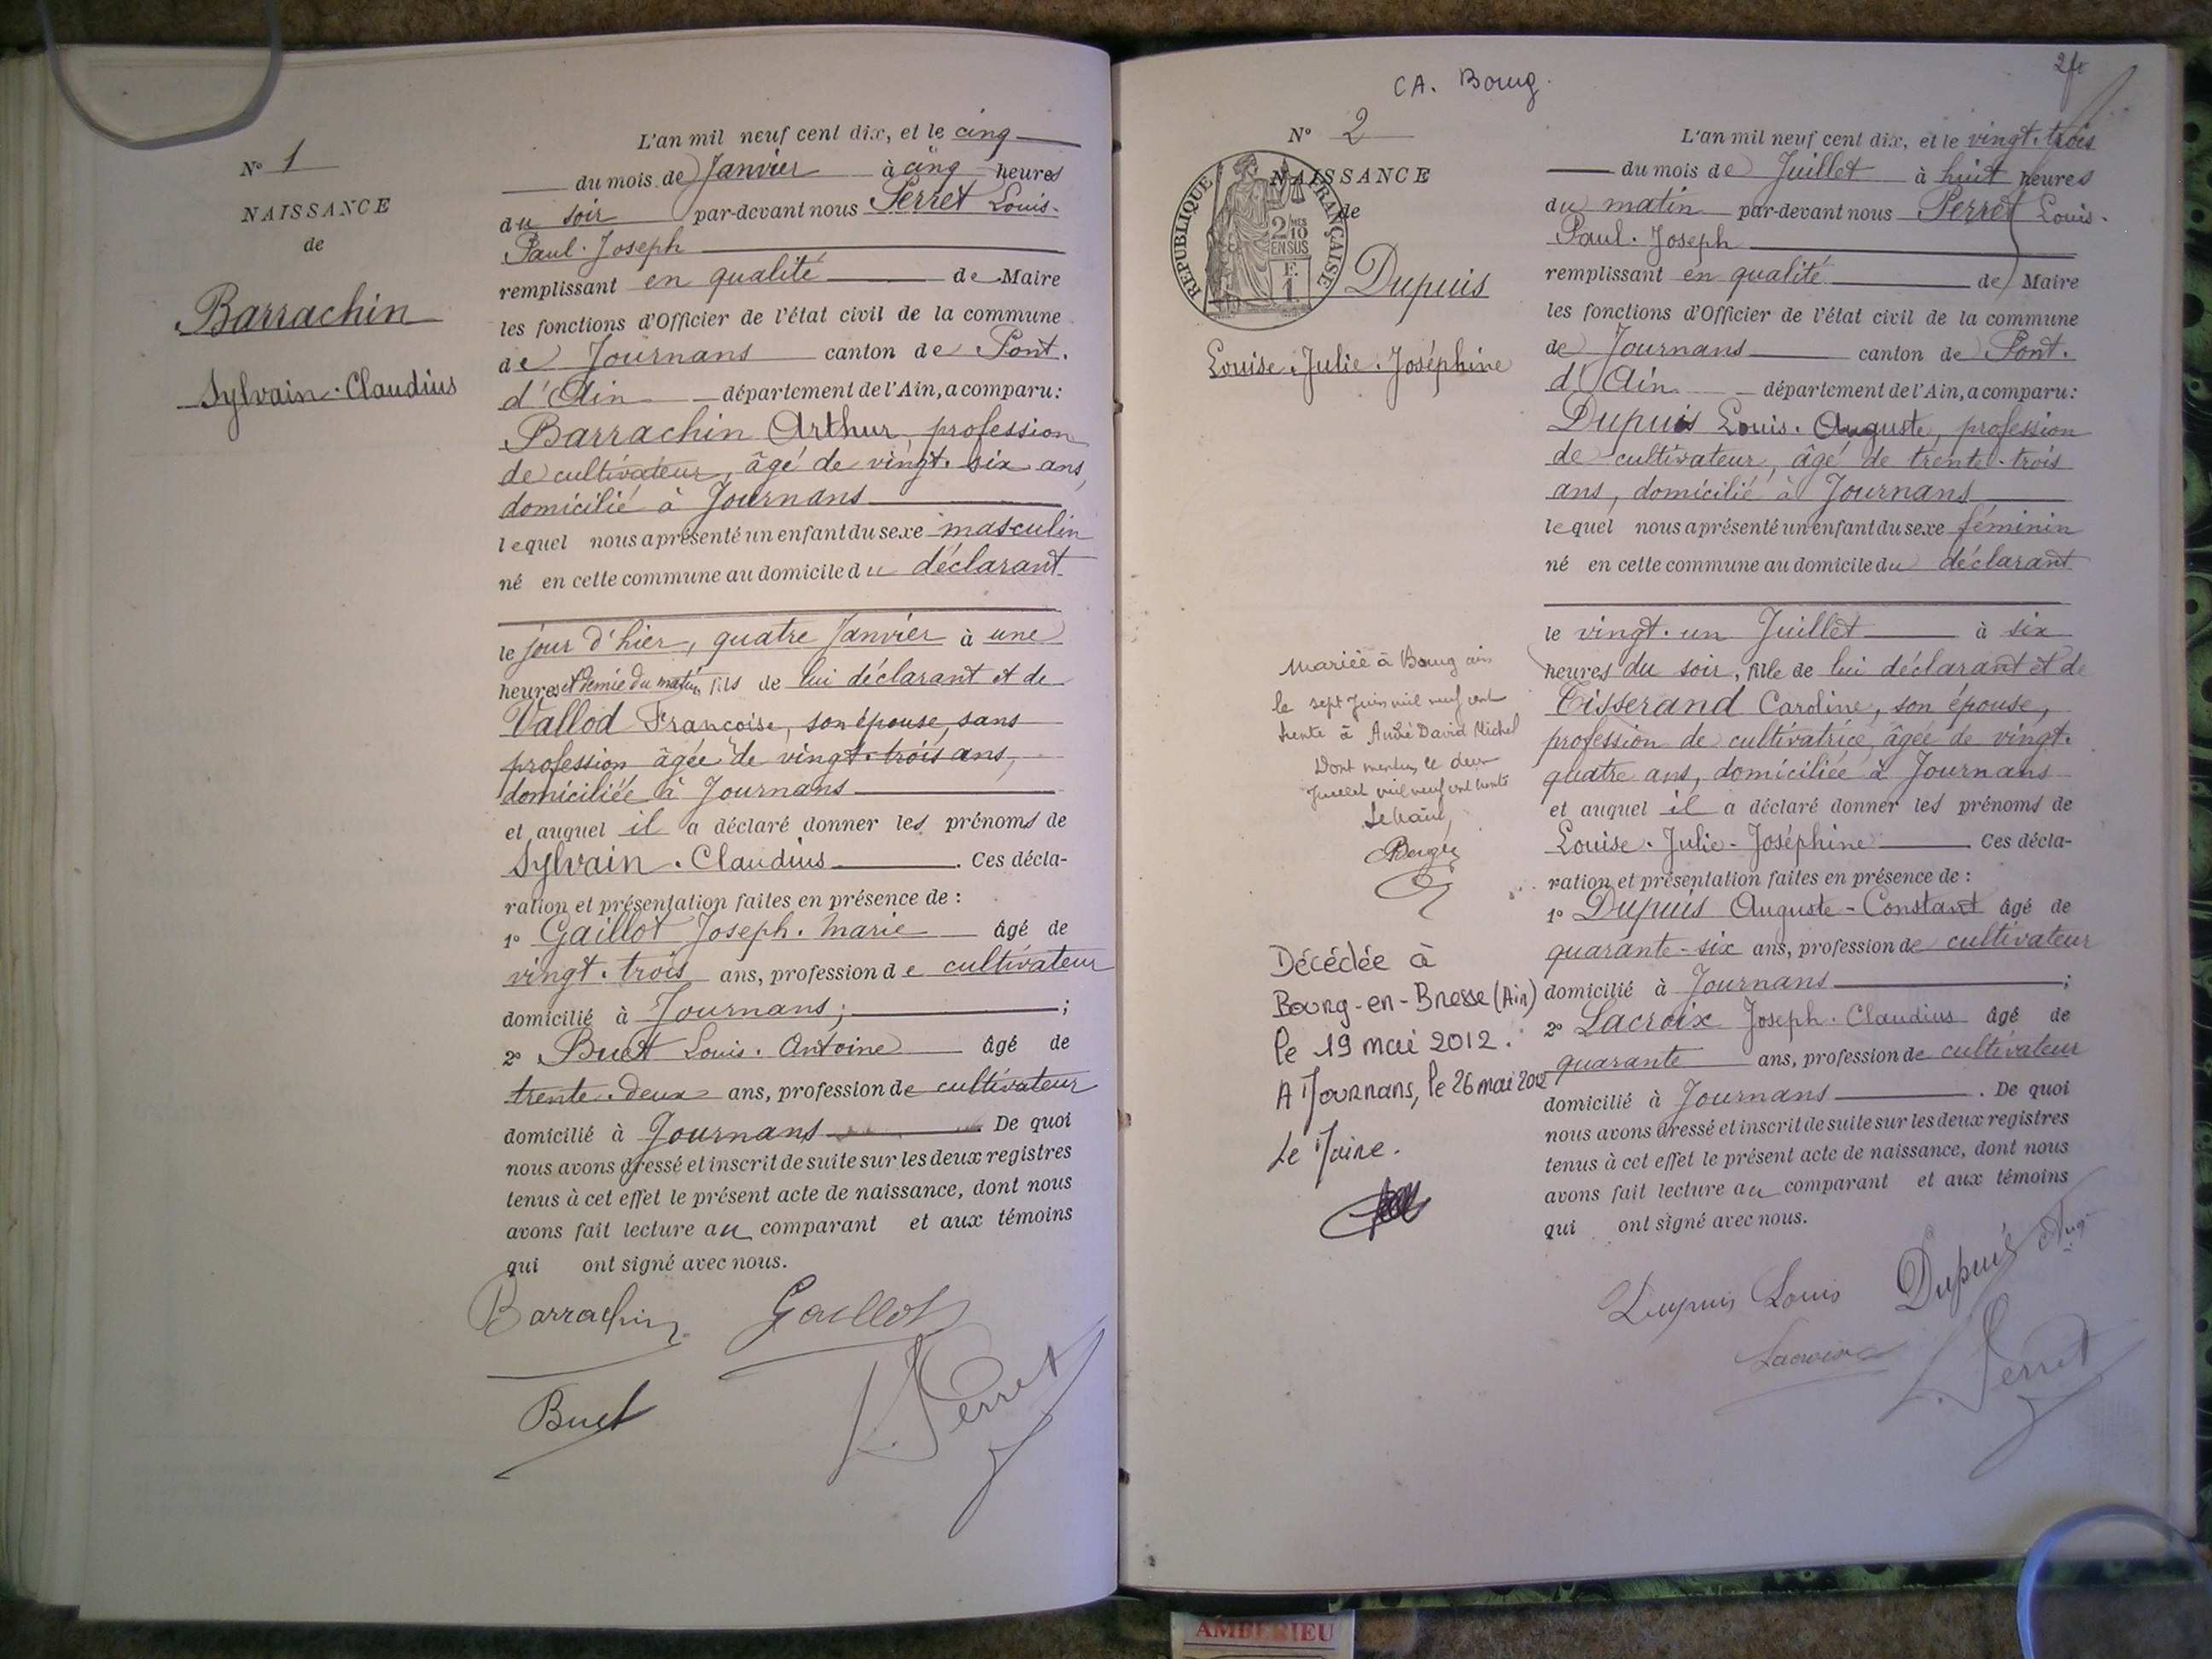 N° 1
NAISSANCE
de
Barrachin
Sylvain-Claudius
L'an mil neuf cent dix, et le cinq
du mois de Janvier à cinq heures
du soir par-devant nous Perret Louis-
Paul-Joseph
remplissant en qualité de Maire
les fonctions d'Officier de l'état civil de la commune
de Journans canton de Pont-
d'Ain département de l'Ain, a comparu:
Barrachin Arthur, profession
de cultivateur, âgé de vingt-six ans,
domicilié à Journans
lequel nous a présenté un enfant du sexe masculin
né en cette commune au domicile du déclarant
le jour d'hier, quatre Janvier à une
heures et demie du matin, fils de lui déclarant et de
Vallod Françoise, son épouse, sans
profession âgée de vingt-trois ans,
domiciliée à Journans
et auquel il a déclaré donner les prénoms de
Sylvain-Claudius. Ces décla-
ration et présentation faites en présence de :
1° Gaillot Joseph-Marie âgé de
vingt-trois ans, profession de cultivateur
domicilié à Journans; ;
2° Buet Louis-Antoine âgé de
trente-deux ans, profession de cultivateur
domicilié à Journans. De quoi
nous avons dressé et inscrit de suite sur les deux registres
tenus à cet effet le présent acte de naissance, dont nous
avons fait lecture au comparant et aux témoins
qui ont signé avec nous.
Barrachin Gaillot
Buet L. Perret
CA. Bourg.
N° 2
NAISSANCE
de
REPUBLIQUE FRANÇAISE
2/10 EN SUS
F. 1
Dupuis
Louise-Julie-Joséphine
Mariée à Bourg ain
le sept Juin mil neuf cent
trente à André David Michel
Dont mention le deux
Juillet mil neuf cent trente
Décédée à
Bourg-en-Bresse (Ain)
le 19 mai 2012.
A Journans, le 26 mai 2012
Le Maire.
L'an mil neuf cent dix, et le vingt-trois
du mois de Juillet à huit heures
du matin par-devant nous Perret Louis-
Paul-Joseph
remplissant en qualité de Maire
les fonctions d'Officier de l'état civil de la commune
de Journans canton de Pont-
d'Ain département de l'Ain, a comparu:
Dupuis Louis-Auguste, profession
de cultivateur, âgé de trente-trois
ans, domicilié à Journans
lequel nous a présenté un enfant du sexe féminin
né en cette commune au domicile du déclarant
le vingt-un Juillet à six
heures du soir, fille de lui déclarant et de
Tisserand Caroline, son épouse,
profession de cultivatrice, âgée de vingt-
quatre ans, domiciliée à Journans
et auquel il a déclaré donner les prénoms de
Louise-Julie-Joséphine. Ces décla-
ration et présentation faites en présence de :
1° Dupuis Auguste-Constant âgé de
quarante-six ans, profession de cultivateur
domicilié à Journans ;
2° Lacroix Joseph-Claudius âgé de
quarante ans, profession de cultivateur
domicilié à Journans. De quoi
nous avons dressé et inscrit de suite sur les deux registres
tenus à cet effet le présent acte de naissance, dont nous
avons fait lecture au comparant et aux témoins
qui ont signé avec nous.
Dupuis Louis Dupuis Aug
Lacroix L. Perret
AMBERIEU